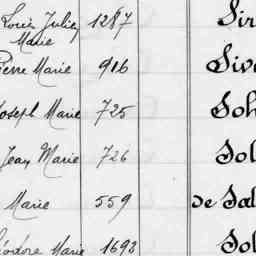 Louis Julien 1287 Sir
Marie
Pierre Marie 916 Siv
Joseph Marie 725 Soh
Jean Marie 726 Sol
Marie 559 de Sal
Théodore Marie 1693 Sol